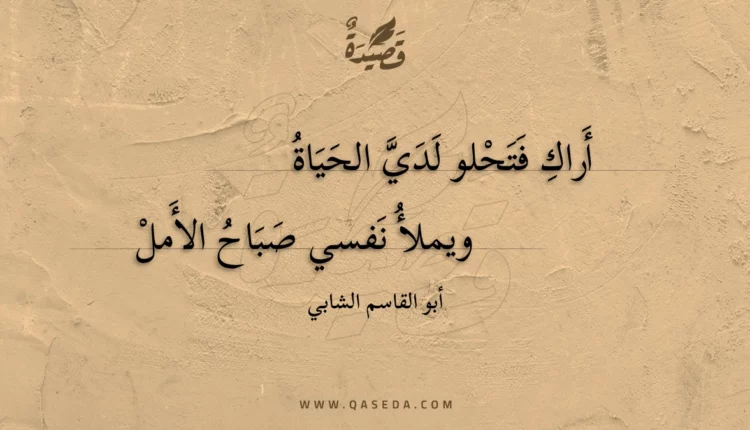 قَصِيدَةٌ
أَراكِ فَتَحْلو لَدَيَّ الحَيَاةُ
ويملأُ نَفسي صَبَاحُ الأَملْ
أبو القاسم الشابي
WWW.QASEDA.COM